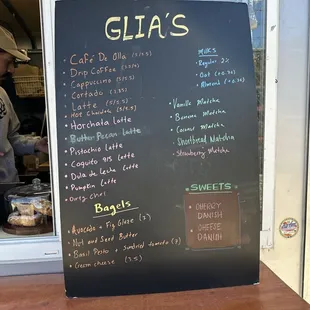 GLIA'S
Café De Olla
Drip Coffee
Cappuccino
Cortado
Latte
Hot Chocolate
Horchata Latte
Butter Pecan Latte
Pistachio Latte
Coquito 915 Latte
Dulce de Leche Latte
Pumpkin Latte
Dirty Chai
Bagels
Avocado + Fig Glaze (7)
Nut and Seed Butter
Basil Pesto + Sundried tomato (7)
Cream cheese (3.5)
MILKS
Regular 2%
Oat (+0.50)
Almond (+0.50)
Vanilla Matcha
Banana Matcha
Coconut Matcha
Shortbread Matcha
Strawberry Matcha
SWEETS
CHERRY
DANISH
CHEESE
DANISH